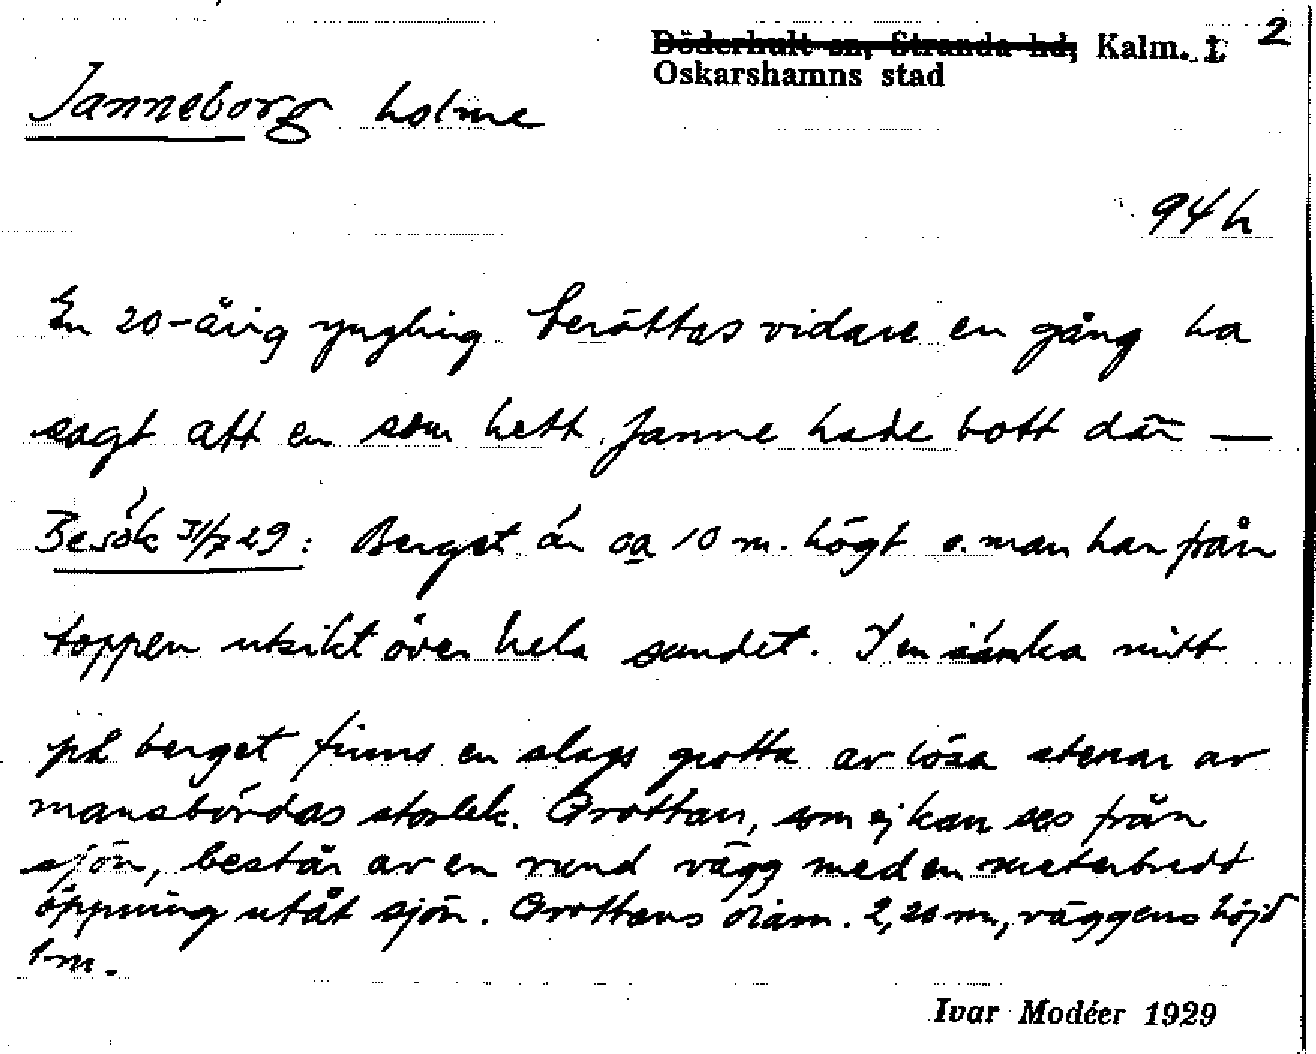 Döderhult sn, Stranda hd, Kalm. L 2
Oskarshamns stad
Janneborg holme
94 h
En 20-årig yngling berättas vidare en gång ha
sagt att en som hett Janne hade bott där —
Besök 31/7 29: Berget är ca 10 m. högt o. man har från
toppen utsikt över hela sundet. I en sänka mitt
på berget finns en slags grotta av lösa stenar av
mansbördas storlek. Grottan, som ej kan ses från
sjön, består av en rund vägg med en meterbredd
öppning utåt sjön. Grottans diam. 2,20 m, väggens höjd
1 m.
Ivar Modéer 1929